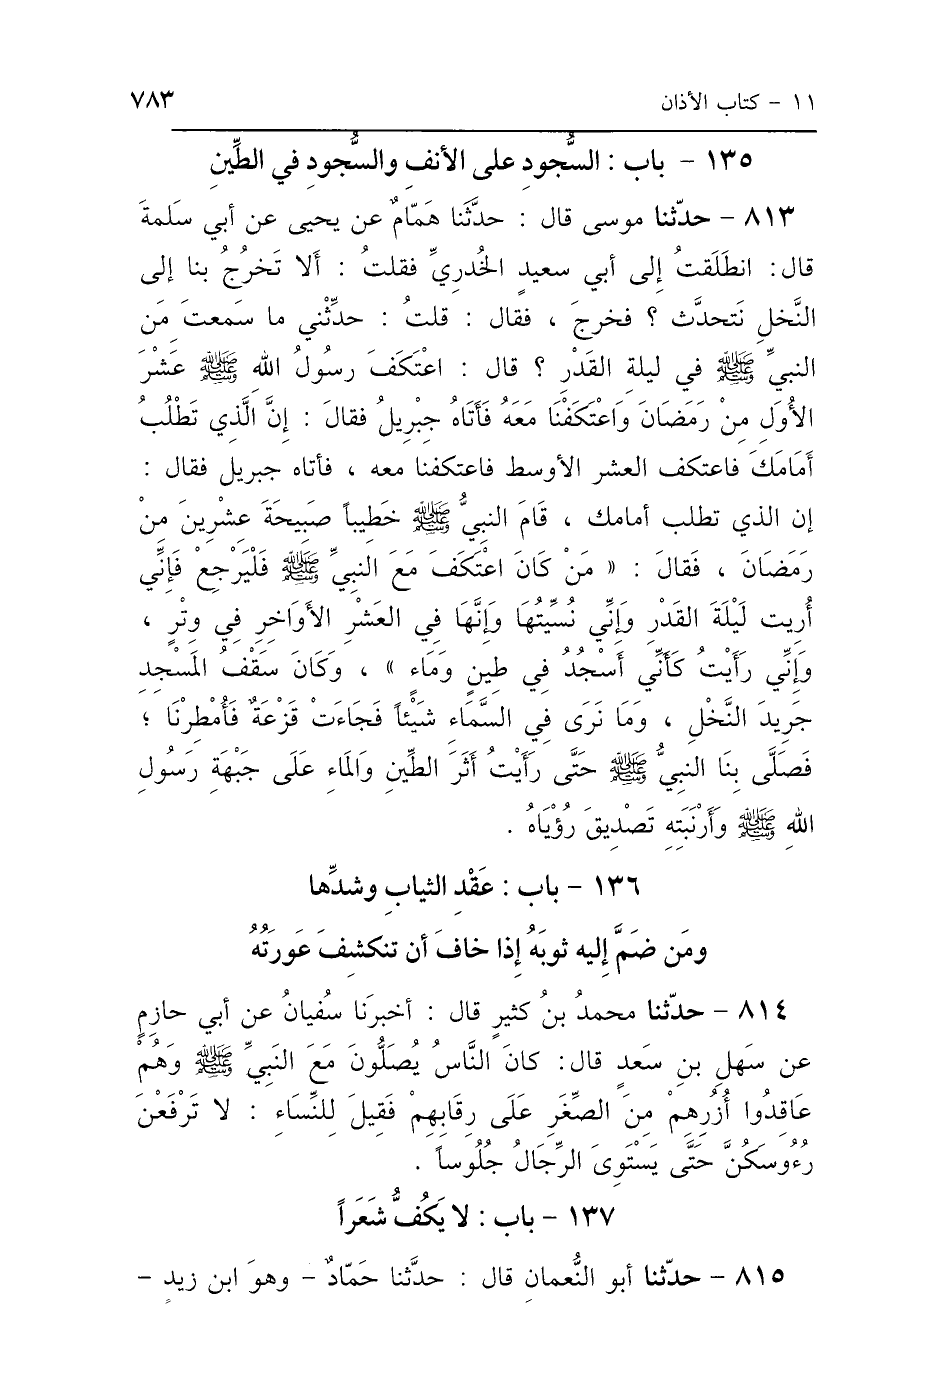 ١١ - كتاب الأذان ٧٨٣
١٣٥ - باب : السُّجودِ على الأنفِ والسُّجودِ في الطِّينِ
٨١٣ - حدّثنا موسى قال : حدَّثَنا هَمّامٌ عن يحيى عن أبي سَلمةَ
قال: انطَلَقتُ إلى أبي سعيدٍ الخُدريِّ فقلتُ : أَلا تَخرُجُ بنا إلى
النَّخلِ نَتحدَّث ؟ فخرجَ ، فقال : قلتُ : حدِّثْني ما سَمعتَ مَنِ
النبيِّ ﷺ في ليلةِ القَدْرِ ؟ قال : اعْتَكَفَ رسُولُ اللهِ ﷺ عَشْرَ
الأُوَلِ مِنْ رَمَضَانَ وَاعْتَكَفْنَا مَعَهُ فَأَتَاهُ جِبْرِيلُ فقالَ : إِنَّ الَّذِي تَطْلُبُ
أَمَامَكَ فاعتكف العشر الأوسط فاعتكفنا معه ، فأتاه جبريل فقال :
إن الذي تطلب أمامك ، قَامَ النبيُّ ﷺ خَطِيباً صَبِيحَةَ عِشْرِينَ مِنْ
رَمَضَانَ ، فَقَالَ : « مَنْ كَانَ اعْتَكَفَ مَعَ النبيِّ ﷺ فَلْيَرْجِعْ فَإِنِّي
أُرِيت لَيْلَةَ القَدْرِ وَإِنِّي نُسِّيتُهَا وَإِنَّهَا فِي العَشْرِ الأَوَاخِرِ فِي وِتْرٍ ،
وَإِنِّي رَأَيْتُ كَأَنِّي أَسْجُدُ فِي طِينٍ وَمَاءٍ » ، وَكَانَ سَقْفُ المَسْجِدِ
جَرِيدَ النَّخْلِ ، وَمَا نَرَى فِي السَّمَاءِ شَيْئاً فَجَاءَتْ قَزْعَةٌ فَأُمْطِرْنَا ؛
فَصَلَّى بِنَا النبيُّ ﷺ حَتَّى رَأَيْتُ أَثَرَ الطِّينِ وَالمَاءِ عَلَى جَبْهَةِ رَسُولِ
اللهِ ﷺ وَأَرْنَبَتِهِ تَصْدِيقَ رُؤْيَاهُ .
١٣٦ - باب : عَقْدِ الثيابِ وشدِّها
ومَن ضَمَّ إِليهِ ثوبَهُ إِذا خافَ أن تنكشفَ عَورَتُهُ
٨١٤ - حدّثنا محمدُ بنُ كثيرٍ قال : أخبرَنا سُفيانُ عن أبي حازمٍ
عن سَهلِ بنِ سَعدٍ قال: كانَ النَّاسُ يُصَلُّونَ مَعَ النَبيِّ ﷺ وَهُمْ
عَاقِدُوا أُزُرِهِمْ مِنَ الصِّغَرِ عَلَى رِقَابِهِمْ فَقِيلَ لِلنِّسَاءِ : لا تَرْفَعْنَ
رُءُوسَكُنَّ حَتَّى يَسْتَوِيَ الرِّجَالُ جُلُوساً .
١٣٧ - باب : لا يَكُفُّ شَعَراً
٨١٥ - حدّثنا أبو النُّعمانِ قال : حدَّثنا حَمّادٌ - وهوَ ابن زيدٍ -